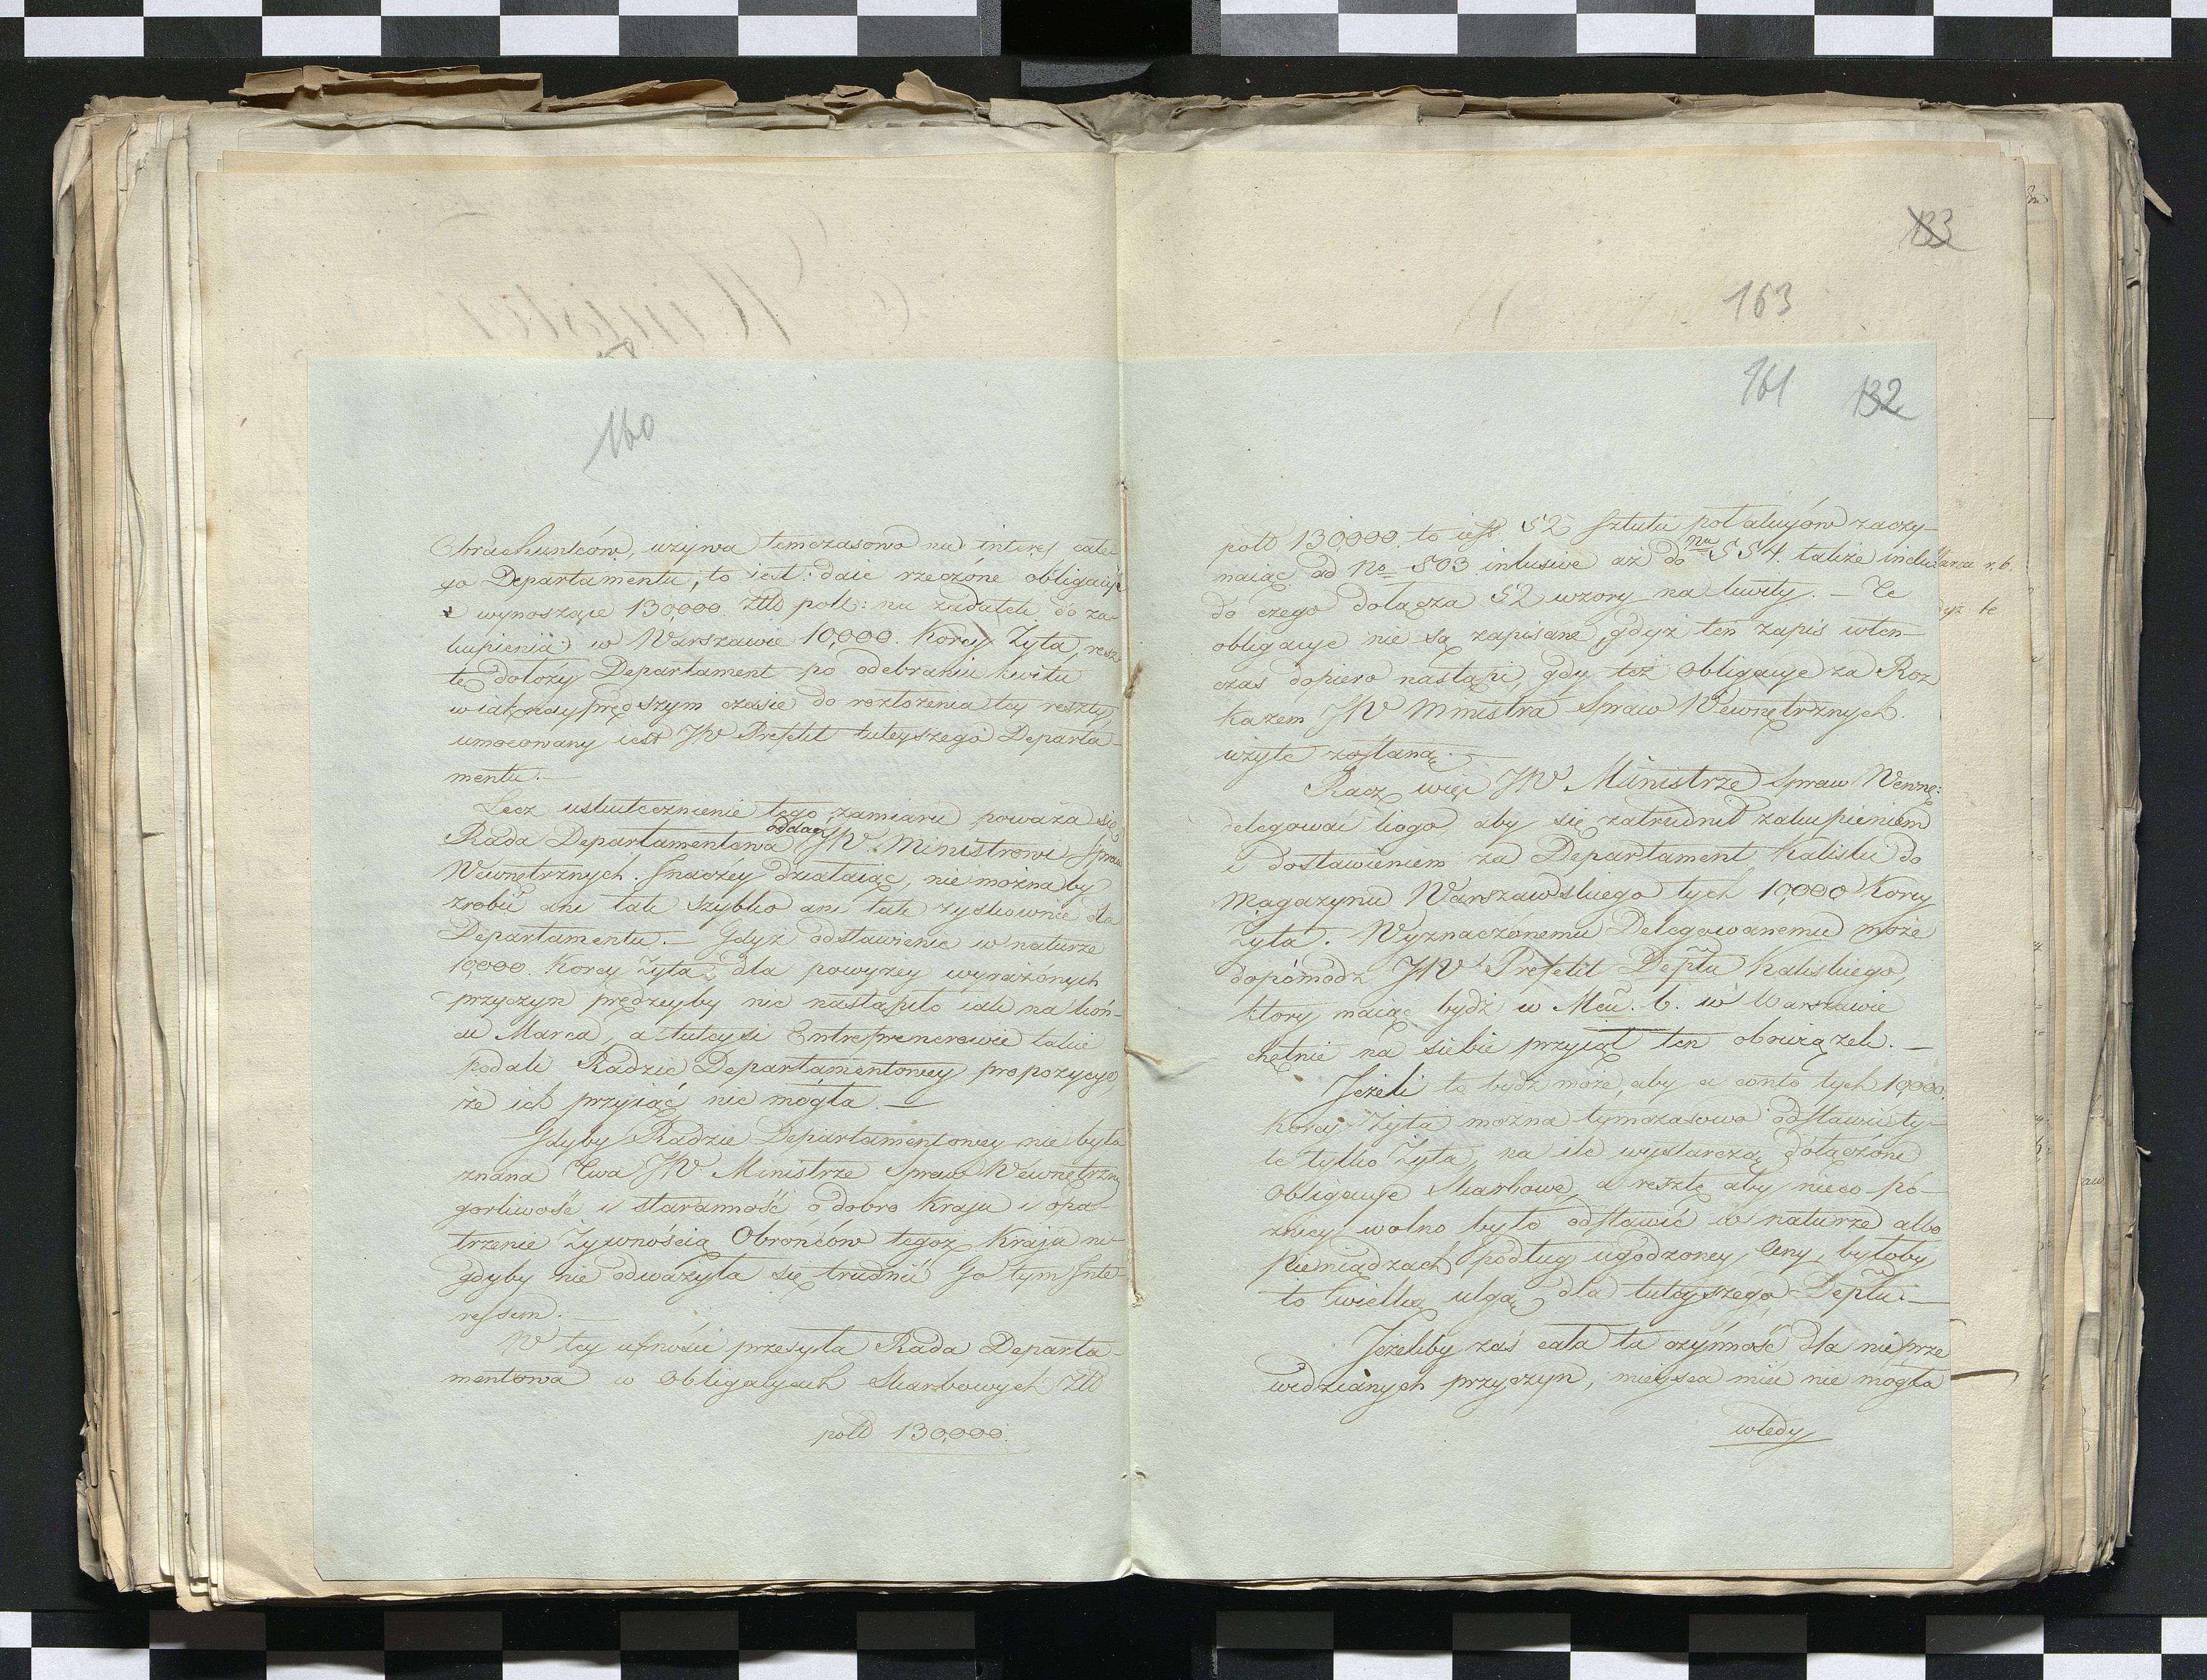 160
Obrachunków, używa temczasowo na interes całe-
go Departamentu, to iest: daie rzeczóne obligacye
wynoszące 130,000. Złt pol: na zadatek do za-
kupienia w Warszawie 10,000. Korcy Żyta, resz-
tę dołoży Departament po odebraniu kwitu
w iak nayprędszym czasie do rozłożenia tey reszty,
umocowany iest JW Prefekt tuteyszego Departa-
mentu.—
Lecz uskutecznienie tego zamiaru poważa się
Rada Departamentowa oddać JW. Ministrowi Spraw
Wewnętrznych. Inaczéy działaiąc, nie możnaby
zrobić ani tak szybko ani tak zyskownie dla
Departamentu.— Gdyż odstawienie w naturze
10,000. Korcy Żyta, dla powyżey wyrażónych
przyczyn prędzeyby nie nastąpiło iak na koń-
cu Marca, a tuteysi Entreprenerowie takie
podali Radzie Departamentowey propozycye,
że ich przyiąć nie mogła.—
Gdyby Radzie Departamentowey nie była
znana Twa JW Ministrze Spraw Wewnętrzny
gorliwość i staranność o dobro Kraju i opa-
trzenie Żywnością Obrońców tegoż Kraju ni-
gdyby nie odważyła się trudnić Go tym Inte-
ressem.—
W tey ufności przesyła Rada Departa-
mentowa w Obligacyach Skarbowych Złt
pol 130,000.
133
163
161 132
pol 130,000. to iest 52 sztuki pół akcyów zaczy-
naiąc od No 503 inlusive aż do No 554. także inclu
do czego dołącza 52 wzory na kwity.— Te
obligacye nie są zapisane, gdyż ten zapis wten-
czas dopiero nastąpi, gdy też Obligacye za Roz
kazem JW Ministra Spraw Wewnętrznych.
użyte zostaną.—
Racz więc JW Ministrze Spraw Wewnę:
delegować kogo, aby się zatrudnił zakupieniem
i dostawieniem za Departament Kaliski do
Magazynu Warszawskiego tych 10,000 Korcy
Żyta. Wyznaczónemu Delegowanemu może
dopómodz JW Prefekt Deptu Kaliskiego,
który maiąc bydź w w Warszawie
chętnie na siebie przyiął ten obowiązek.—
Jeżeli to bydź może, aby a conto tych 10,000.
Korcy Żyta można tymczasowo odstawić ty-
le tylko Żyta, na ile wystarczą dołączóne
Obligacye Skarbowe, a resztę aby nieco pó-
zniey wolno było odstawić w naturze albo
Pieniądzach podług ugodzoney Ceny, byłoby
to wielką ulgą dla tuteyszego Deptu.—
Jeżeliby zaś cała ta czynność dla nieprze
widzianych przyczyn, mieysca mieć nie mogła
wtedy